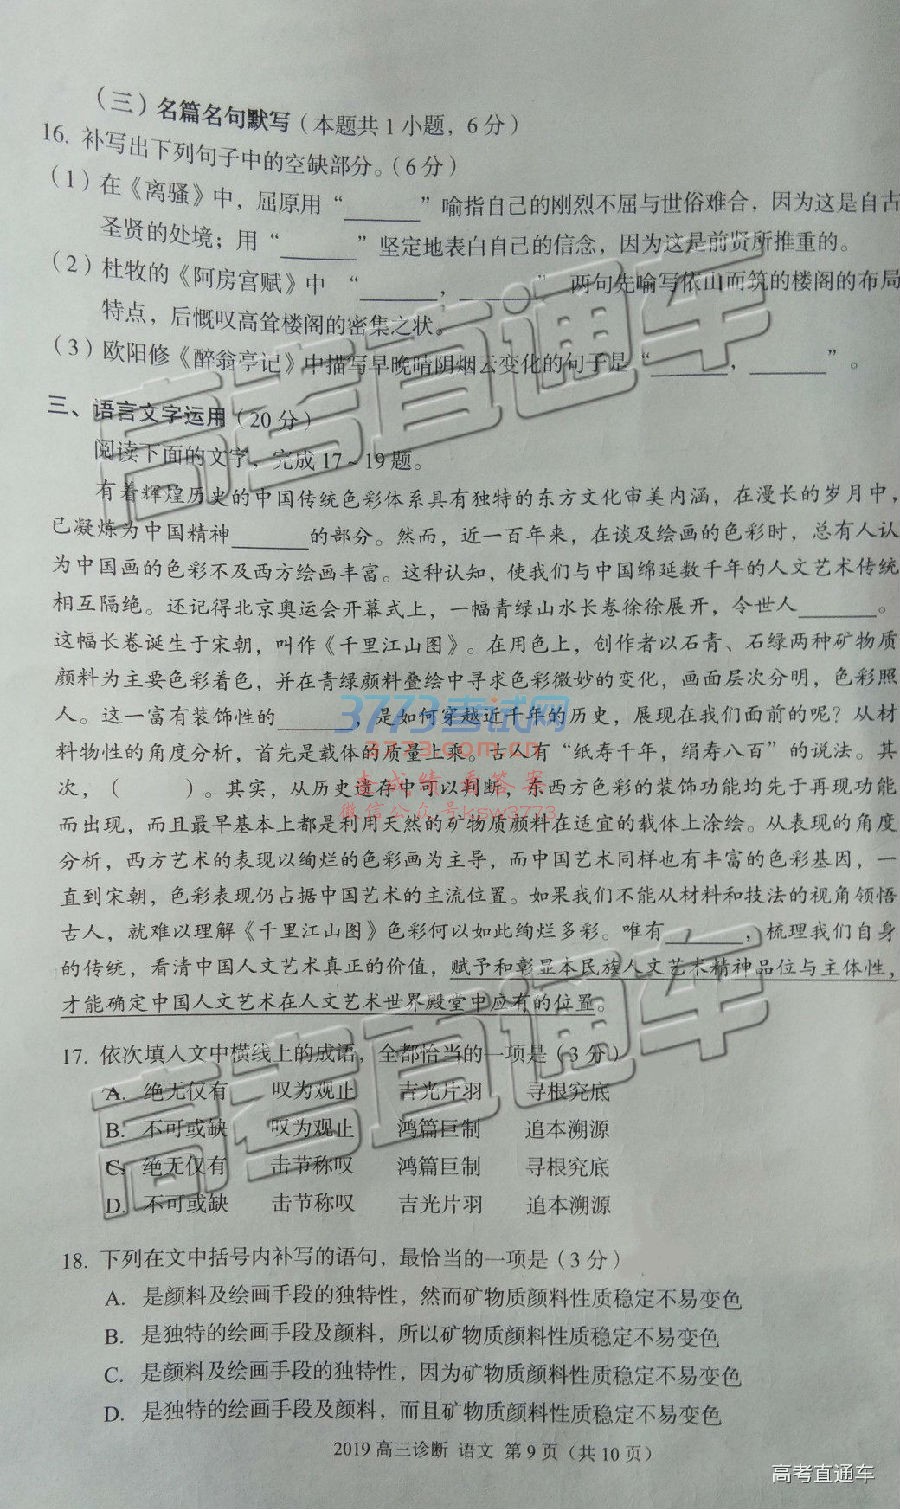 （三）名篇名句默写（本题共1小题，6分）
16. 补写出下列句子中的空缺部分。（6分）
（1）在《离骚》中，屈原用“______”喻指自己的刚烈不屈与世俗难合，因为这是自古
圣贤的处境；用“______”坚定地表白自己的信念，因为这是前贤所推重的。
（2）杜牧的《阿房宫赋》中“______，______”两句先喻写依山而筑的楼阁的布局
特点，后慨叹高耸楼阁的密集之状。
（3）欧阳修《醉翁亭记》中描写早晚晴阴烟云变化的句子是“______，______”。
三、语言文字运用（20分）
阅读下面的文字，完成17～19题。
有着辉煌历史的中国传统色彩体系具有独特的东方文化审美内涵，在漫长的岁月中，
已凝炼为中国精神______的部分。然而，近一百年来，在谈及绘画的色彩时，总有人认
为中国画的色彩不及西方绘画丰富。这种认知，使我们与中国绵延数千年的人文艺术传统
相互隔绝。还记得北京奥运会开幕式上，一幅青绿山水长卷徐徐展开，令世人______。
这幅长卷诞生于宋朝，叫作《千里江山图》。在用色上，创作者以石青、石绿两种矿物质
颜料为主要色彩着色，并在青绿颜料叠绘中寻求色彩微妙的变化，画面层次分明，色彩照
人。这一富有装饰性的______，是如何穿越近千年的历史，展现在我们面前的呢？从材
料物性的角度分析，首先是载体的质量上乘。古人有“纸寿千年，绢寿八百”的说法。其
次，（　　）。其实，从历史遗存中可以判断，东西方色彩的装饰功能均先于再现功能
而出现，而且最早基本上都是利用天然的矿物质颜料在适宜的载体上涂绘。从表现的角度
分析，西方艺术的表现以绚烂的色彩画为主导，而中国艺术同样也有丰富的色彩基因，一
直到宋朝，色彩表现仍占据中国艺术的主流位置。如果我们不能从材料和技法的视角领悟
古人，就难以理解《千里江山图》色彩何以如此绚烂多彩。唯有______，梳理我们自身
的传统，看清中国人文艺术真正的价值，赋予和彰显本民族人文艺术精神品位与主体性，
才能确定中国人文艺术在人文艺术世界殿堂中应有的位置。
17. 依次填入文中横线上的成语，全部恰当的一项是（3分）
A. 绝无仅有　叹为观止　吉光片羽　寻根究底
B. 不可或缺　叹为观止　鸿篇巨制　追本溯源
C. 绝无仅有　击节称叹　鸿篇巨制　寻根究底
D. 不可或缺　击节称叹　吉光片羽　追本溯源
18. 下列在文中括号内补写的语句，最恰当的一项是（3分）
A. 是颜料及绘画手段的独特性，然而矿物质颜料性质稳定不易变色
B. 是独特的绘画手段及颜料，所以矿物质颜料性质稳定不易变色
C. 是颜料及绘画手段的独特性，因为矿物质颜料性质稳定不易变色
D. 是独特的绘画手段及颜料，而且矿物质颜料性质稳定不易变色
2019高三诊断 语文 第9页（共10页）
高考直通车
高考直通车
3773考试网
3773.com.cn
查成绩 看答案
微信公众号ksw3773
高考直通车